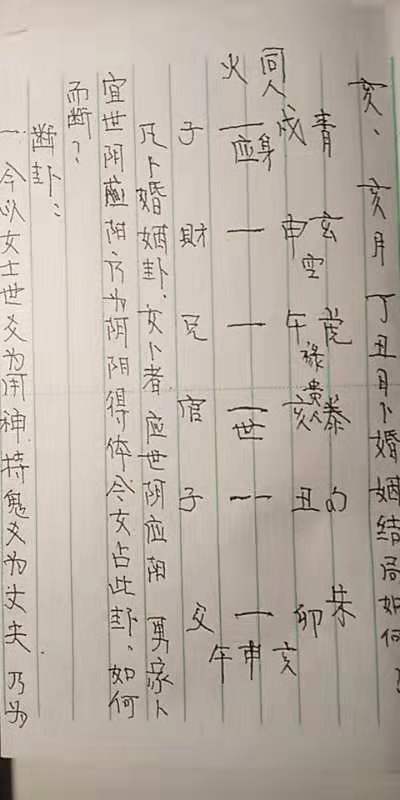 亥、亥月丁丑月卜婚姻结局如何?
火同人
青戌一应身子
玄申空一財
虎午禄贵人一兄
亥一世官
丑--子
朱卯一父
午申亥
凡卜婚姻卦、女卜者应世阴应阳男家卜
宜世阴应阳方为阴阴得体今女占此卦、如何
而断?
断卦:
一今以女士世爻为用神.持鬼爻为丈夫.乃为